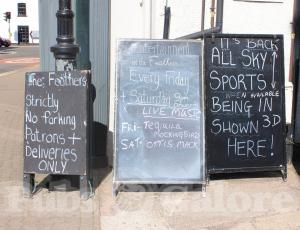 The Feathers
Strictly
No Parking
Patrons +
Deliveries
ONLY
Entertainment
at the Feathers
Every Friday
+ Saturday
LIVE MUSIC
FRI- TEQUILA
MOCKINGBIRD
SAT- OTIS MACK
IT'S BACK
ALL SKY
SPORTS
NOW AVAILABLE
BEING IN
SHOWN 3D
HERE!